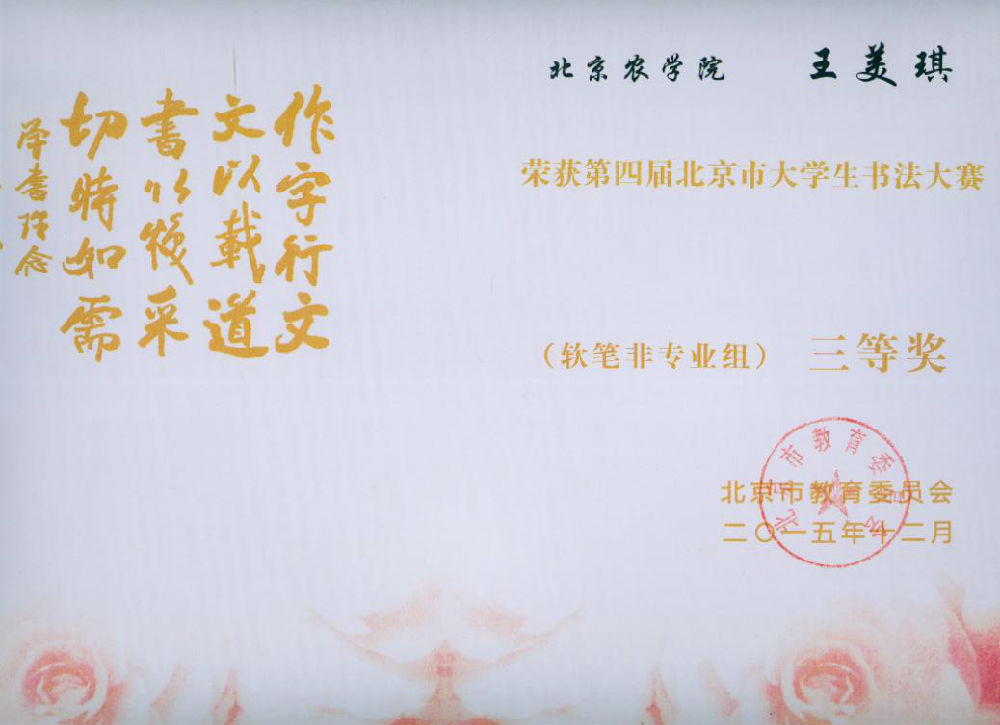 北京农学院 王美琪
荣获第四届北京市大学生书法大赛
（软笔非专业组） 三等奖
北京市教育委员会
二〇一五年十二月
北京市教育委员会
作字行文
文以载道
書以焕采
切時如需